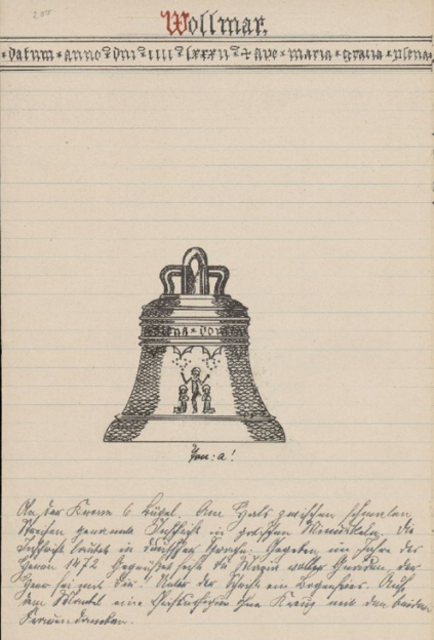 Wollmar.
* datum * anno * dni * iiii * lxxii * + ave * maria * gracia * plena
plena * domi
Ton: a!
An der Krone 6 Bügel. Am Hals zwischen schmalen
Streifen genannte Inschrift in gotischen Minuskeln. Die
Inschrift lautet in deutscher Sprache: Gegeben im Jahre des
Herrn 1472 Gegrüßet seist du Maria voller Gnaden, der
Herr sei mit dir! Unter der Schrift ein Bogenfries. Auf
dem Mantel eine ohne Kreuz mit den beiden